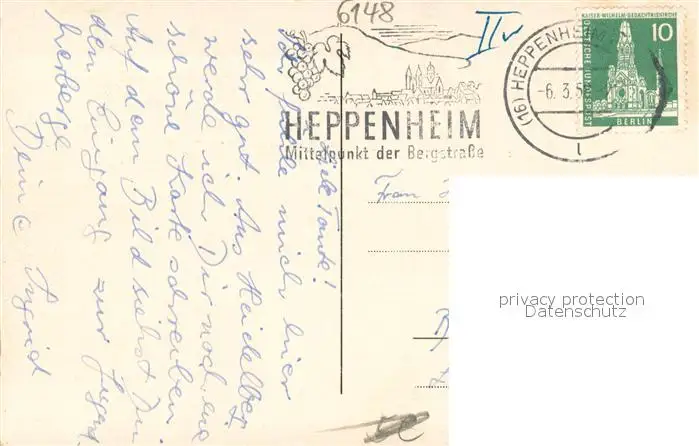 6148
II
HEPPENHEIM
Mittelpunkt der Bergstraße
(16) HEPPENHEIM
-6.3.5
l
KAISER-WILHELM-GEDÄCHTNISKIRCHE
10
DEUTSCHE BUNDESPOST
BERLIN
Tante!
mich hier
sehr gut. Aus Heidelberg
werde ich Dir noch eine
schöne Karte schreiben.
Auf dem Bild siehst Du
den Eingang zur Jugend-
herberge
Deine Ingrid
Frau
privacy protection
Datenschutz